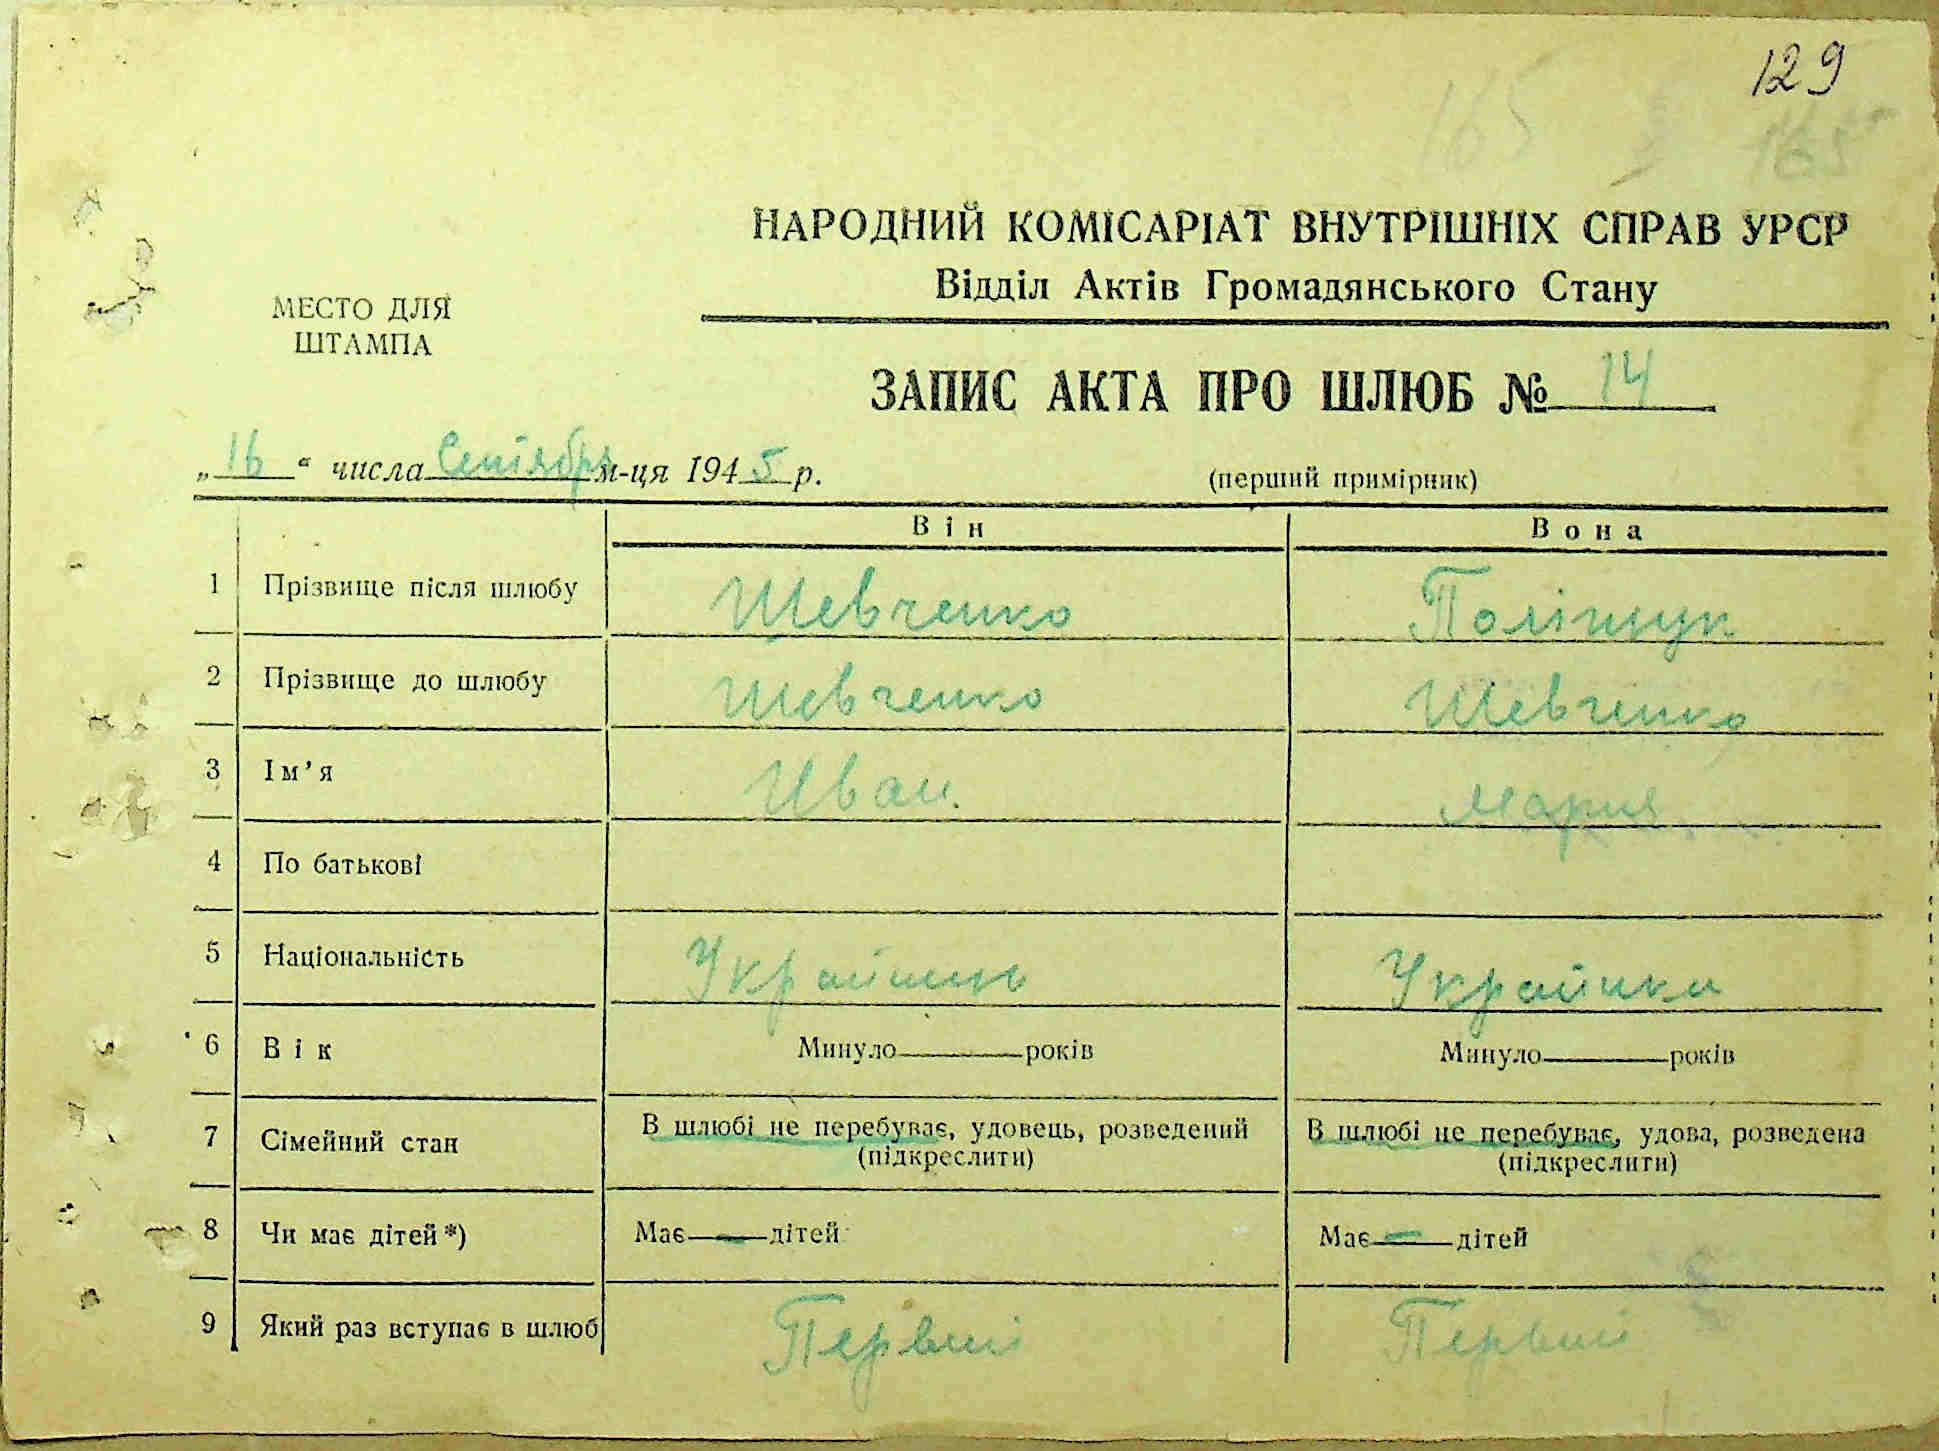 129
165 165
НАРОДНИЙ КОМІСАРІАТ ВНУТРІШНІХ СПРАВ УРСР
Відділ Актів Громадянського Стану
МЕСТО ДЛЯ
ШТАМПА
ЗАПИС АКТА ПРО ШЛЮБ № 14
„16“ числа Сентября м-ця 1945 р.
(перший примірник)
Він Вона
1 Прізвище після шлюбу Шевченко Поліщук
2 Прізвище до шлюбу Шевченко Шевченко
3 Ім’я Иван Мария
4 По батькові
5 Національність Украйинць Украйинка
6 Вік Минуло років Минуло років
7 Сімейний стан В шлюбі не перебуває, удовець, розведений В шлюбі не перебуває, удова, розведена
(підкреслити) (підкреслити)
8 Чи має дітей *) Має — дітей Має — дітей
9 Який раз вступає в шлюб Первий Первий